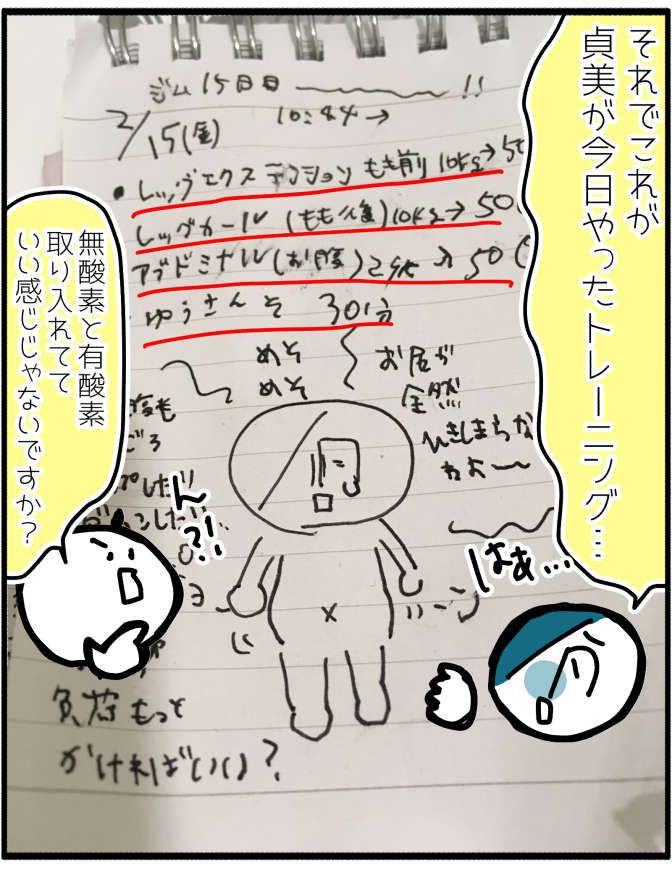 それでこれが
貞美が今日やったトレーニング…
ジム15日目 !!
2/15(金)
10:44→
・レッグエクステンション もも前 10kg→50
レッグカール (もも後) 10kg→50
アブドミナル(お腹) →50
ゆうさんそ 30分
めそ
めそ
お尻が
全然
ひきしまらな
はぁ…
ん?!
無酸素と有酸素
取り入れてて
いい感じじゃないですか？
負荷もっと
かければいい?